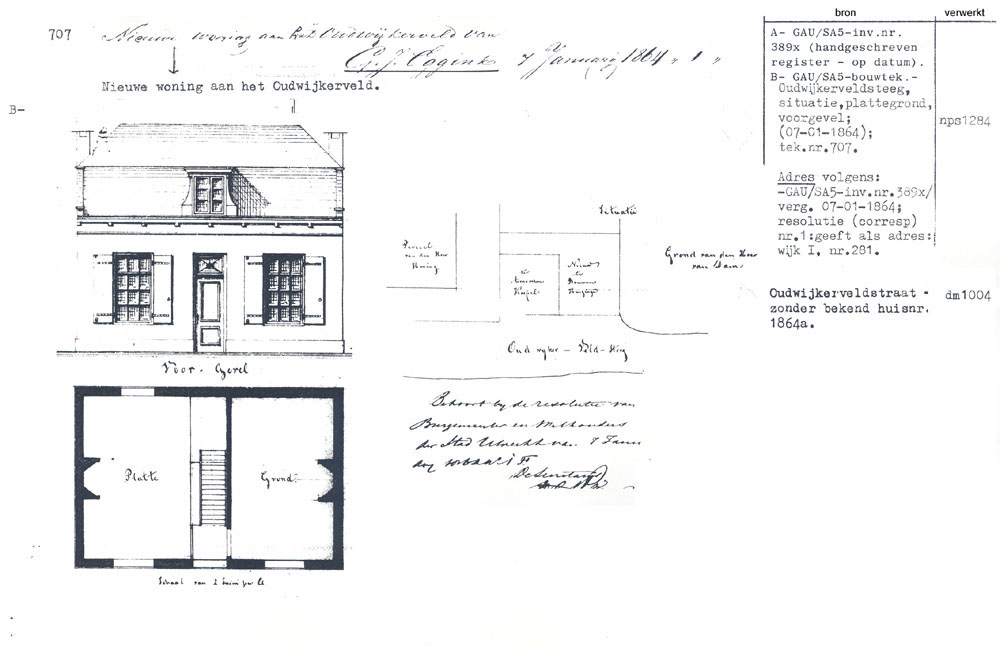 707
Nieuwe woning aan het Oudwijkerveld van
G. J. Eggink 7 January 1864 " 1 "
Nieuwe woning aan het Oudwijkerveld.
B-
Voor-Gevel
Platte Grond
Schaal van 2 duim per El
Situatie
Perceel
van den Heer
Koning
Nieuw
te
Bouwen
Grond van den Heer
van Dam
Oud wyker - Veld-Steeg
Behoort by de resolutie van
Burgemeester en Wethouders
der Stad Utrecht van 7 Janu
ary
De Secretaris
bron verwerkt
A- GAU/SA5-inv.nr.
389x (handgeschreven
register - op datum).
B- GAU/SA5-bouwtek.-
Oudwijkerveldsteeg,
situatie,plattegrond,
voorgevel;
(07-01-1864);
tek.nr.707.
nps1284
Adres volgens:
-GAU/SA5-inv.nr.389x/
verg. 07-01-1864;
resolutie (corresp)
nr.1:geeft als adres:
wijk I, nr.281.
Oudwijkerveldstraat - dm1004
zonder bekend huisnr.
1864a.